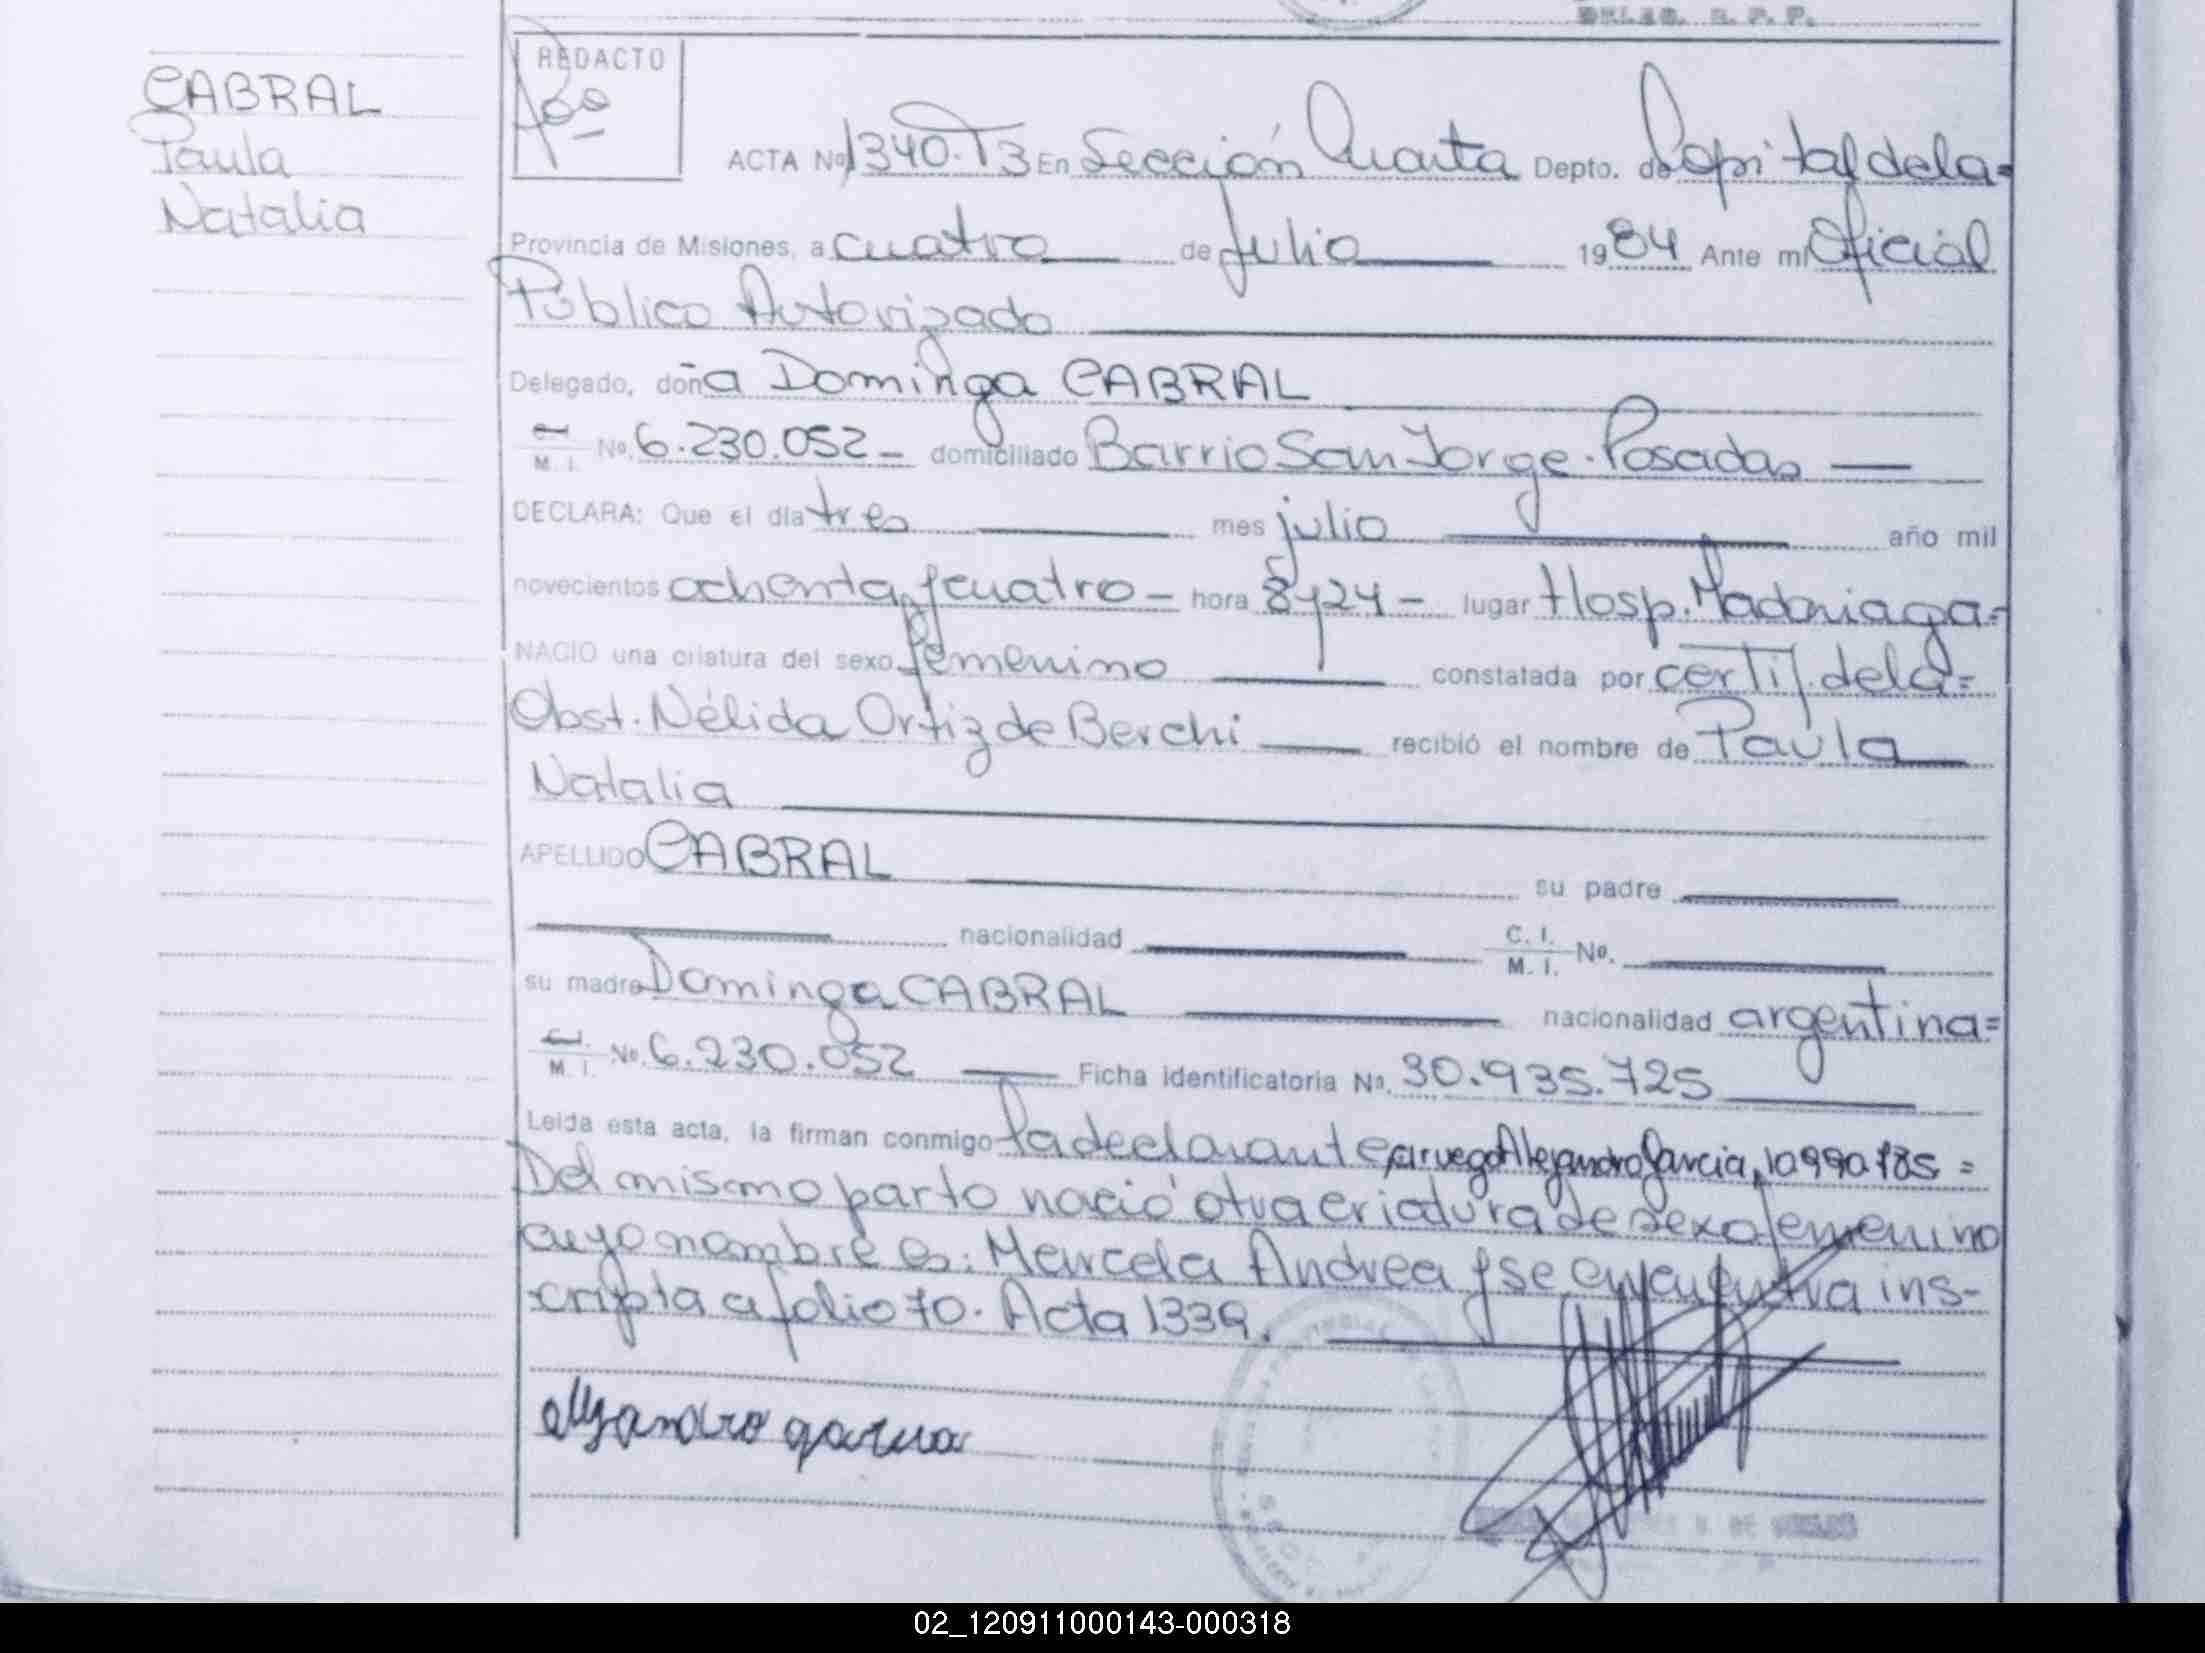 DELEG. R. P. P.
CABRAL
Paula
Natalia
REDACTO
ACTA Nº 1340. T3 En Sección Cuarta Depto. de Capital de la=
Provincia de Misiones, a cuatro de julio 1984 Ante mi Oficial
Público Autorizado
Delegado, doña Dominga CABRAL
M. I. Nº. 6.230.052 - domiciliado Barrio San Jorge. Posadas
DECLARA: Que el día tres mes julio año mil
novecientos ochenta y cuatro - hora 8 y 24 - lugar Hosp. Madariaga=
NACIO una criatura del sexo femenino constatada por certif. de la=
Obst. Nélida Ortiz de Berchi recibió el nombre de Paula
Natalia
APELLIDO CABRAL su padre
nacionalidad C. I. M. I. Nº.
su madre Dominga CABRAL nacionalidad argentina=
M. I. Nº. 6.230.052 Ficha identificatoria Nº. 30.935.725
Leída esta acta, la firman conmigo la declarante a ruego Alejandro Garcia, 10990785 =
Del mismo parto nació otra criatura de sexo femenino
cuyo nombre es: Marcela Andrea y se encuentra ins-
cripta a folio 70. Acta 1339.
alejandro garcia
02_120911000143-000318